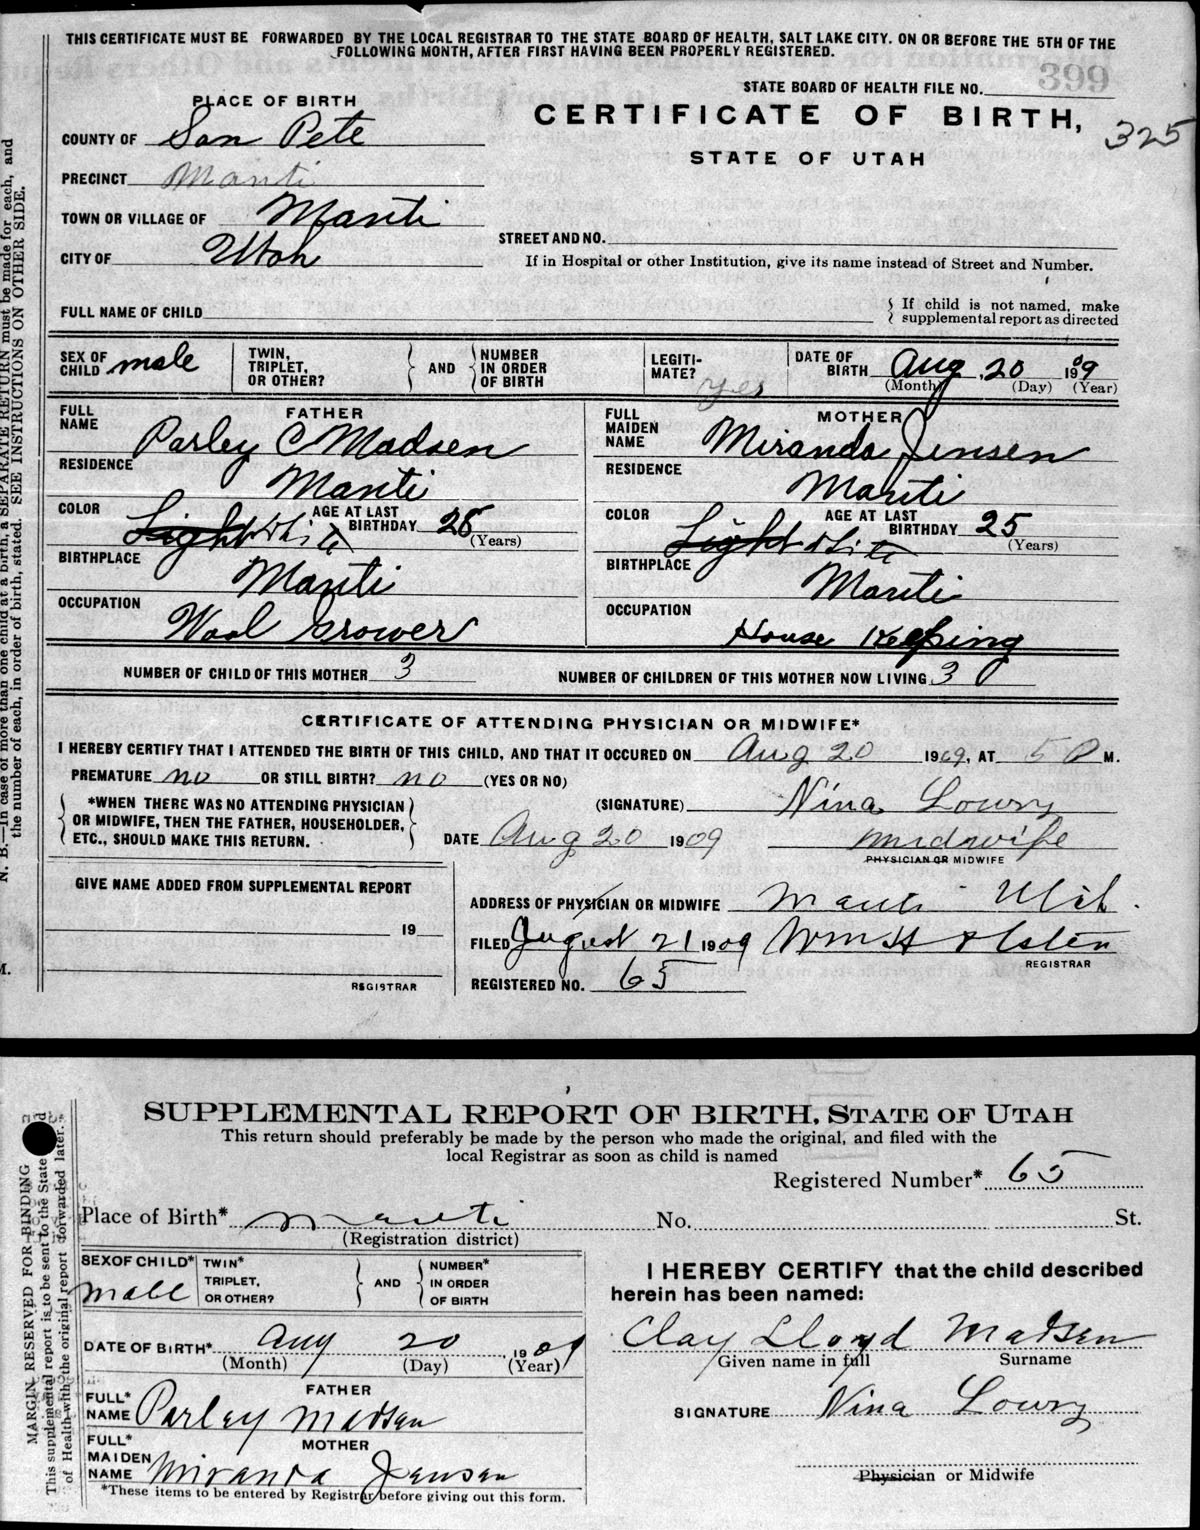 THIS CERTIFICATE MUST BE FORWARDED BY THE LOCAL REGISTRAR TO THE STATE BOARD OF HEALTH, SALT LAKE CITY. ON OR BEFORE THE 5TH OF THE
FOLLOWING MONTH, AFTER FIRST HAVING BEEN PROPERLY REGISTERED.
399
STATE BOARD OF HEALTH FILE NO.
PLACE OF BIRTH
CERTIFICATE OF BIRTH,
325
COUNTY OF San Pete
STATE OF UTAH
PRECINCT Manti
TOWN OR VILLAGE OF Manti
STREET AND NO.
CITY OF Utah
If in Hospital or other Institution, give its name instead of Street and Number.
FULL NAME OF CHILD
If child is not named, make
supplemental report as directed
SEX OF CHILD male
TWIN, TRIPLET, OR OTHER?
AND
NUMBER IN ORDER OF BIRTH
LEGITI-MATE? yes
DATE OF BIRTH Aug 20 1909
(Month) (Day) (Year)
FATHER
FULL NAME Parley C Madsen
RESIDENCE Manti
COLOR Light White AGE AT LAST BIRTHDAY 26 (Years)
BIRTHPLACE Manti
OCCUPATION Wool Grower
MOTHER
FULL MAIDEN NAME Miranda Jensen
RESIDENCE Manti
COLOR Light White AGE AT LAST BIRTHDAY 25 (Years)
BIRTHPLACE Manti
OCCUPATION House Keeping
NUMBER OF CHILD OF THIS MOTHER 3 NUMBER OF CHILDREN OF THIS MOTHER NOW LIVING 3
CERTIFICATE OF ATTENDING PHYSICIAN OR MIDWIFE*
I HEREBY CERTIFY THAT I ATTENDED THE BIRTH OF THIS CHILD, AND THAT IT OCCURED ON Aug 20 1909, AT 5 P M.
PREMATURE no OR STILL BIRTH? no (YES OR NO)
*WHEN THERE WAS NO ATTENDING PHYSICIAN
OR MIDWIFE, THEN THE FATHER, HOUSEHOLDER,
ETC., SHOULD MAKE THIS RETURN.
(SIGNATURE) Nina Lowry
DATE Aug 20 1909 midwife
PHYSICIAN OR MIDWIFE
GIVE NAME ADDED FROM SUPPLEMENTAL REPORT
19
REGISTRAR
ADDRESS OF PHYSICIAN OR MIDWIFE Manti Utah.
FILED August 21 1909 Wm H
REGISTRAR
REGISTERED NO. 65
N. B.—In case of more than one child at a birth, a SEPARATE RETURN must be made for each, and
the number of each, in order of birth, stated. SEE INSTRUCTIONS ON OTHER SIDE.
SUPPLEMENTAL REPORT OF BIRTH, STATE OF UTAH
This return should preferably be made by the person who made the original, and filed with the
local Registrar as soon as child is named
Registered Number* 65
Place of Birth* Manti No. St.
(Registration district)
SEX OF CHILD* Male
TWIN* TRIPLET, OR OTHER?
AND
NUMBER* IN ORDER OF BIRTH
DATE OF BIRTH* Aug 20, 1909
(Month) (Day) (Year)
FATHER
FULL* NAME Parley Madsen
MOTHER
FULL* MAIDEN NAME Miranda Jensen
*These items to be entered by Registrar before giving out this form.
I HEREBY CERTIFY that the child described
herein has been named:
Clay Lloyd Madsen
Given name in full Surname
SIGNATURE Nina Lowry
Physician or Midwife
MARGIN RESERVED FOR BINDING
This supplemental report is to be sent to the State
of Health with the original report forwarded later.